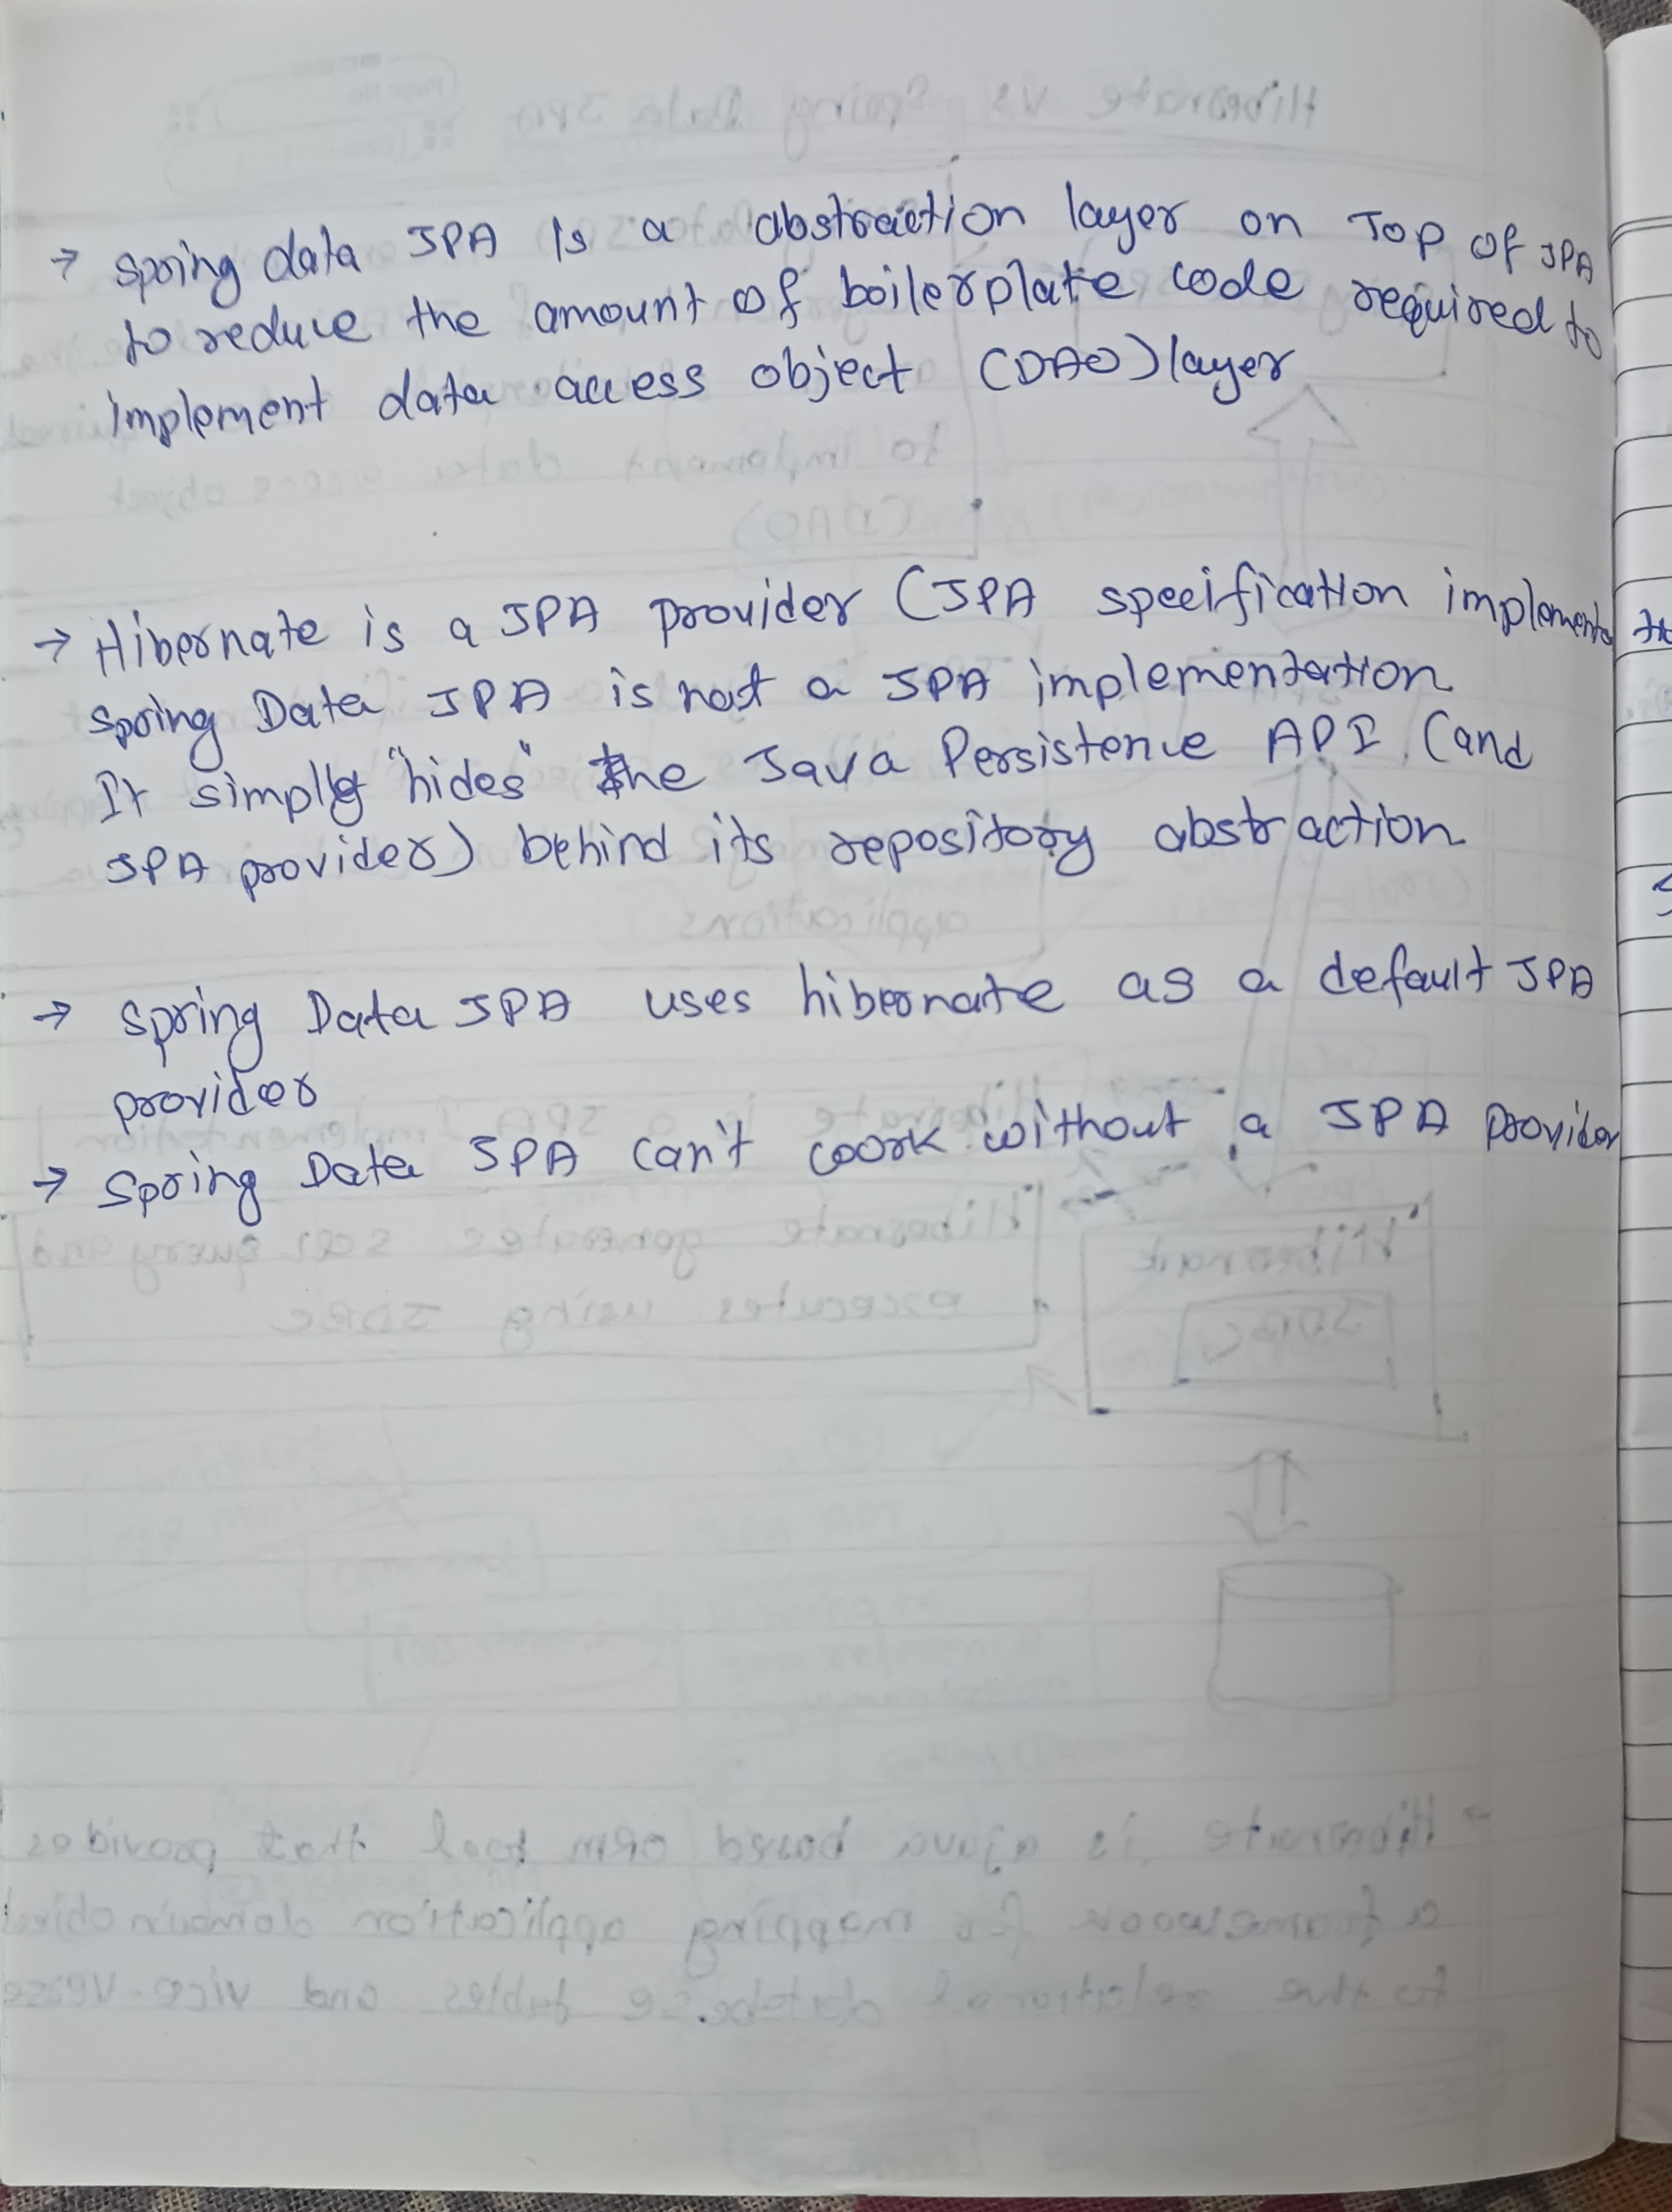 → spring data JPA Is a abstraction layer on Top of JPA
to reduce the amount of boilerplate code required to
implement data access object (DAO) layer
→ Hibernate is a JPA provider (JPA specification
spring Data JPA is not a JPA implementation
It simply "hides" the Java Persistence API (and
JPA provider) behind its repository abstraction
→ spring Data JPA uses hibernate as a default JPA
provider
→ Spring Data JPA can't work without a JPA provider